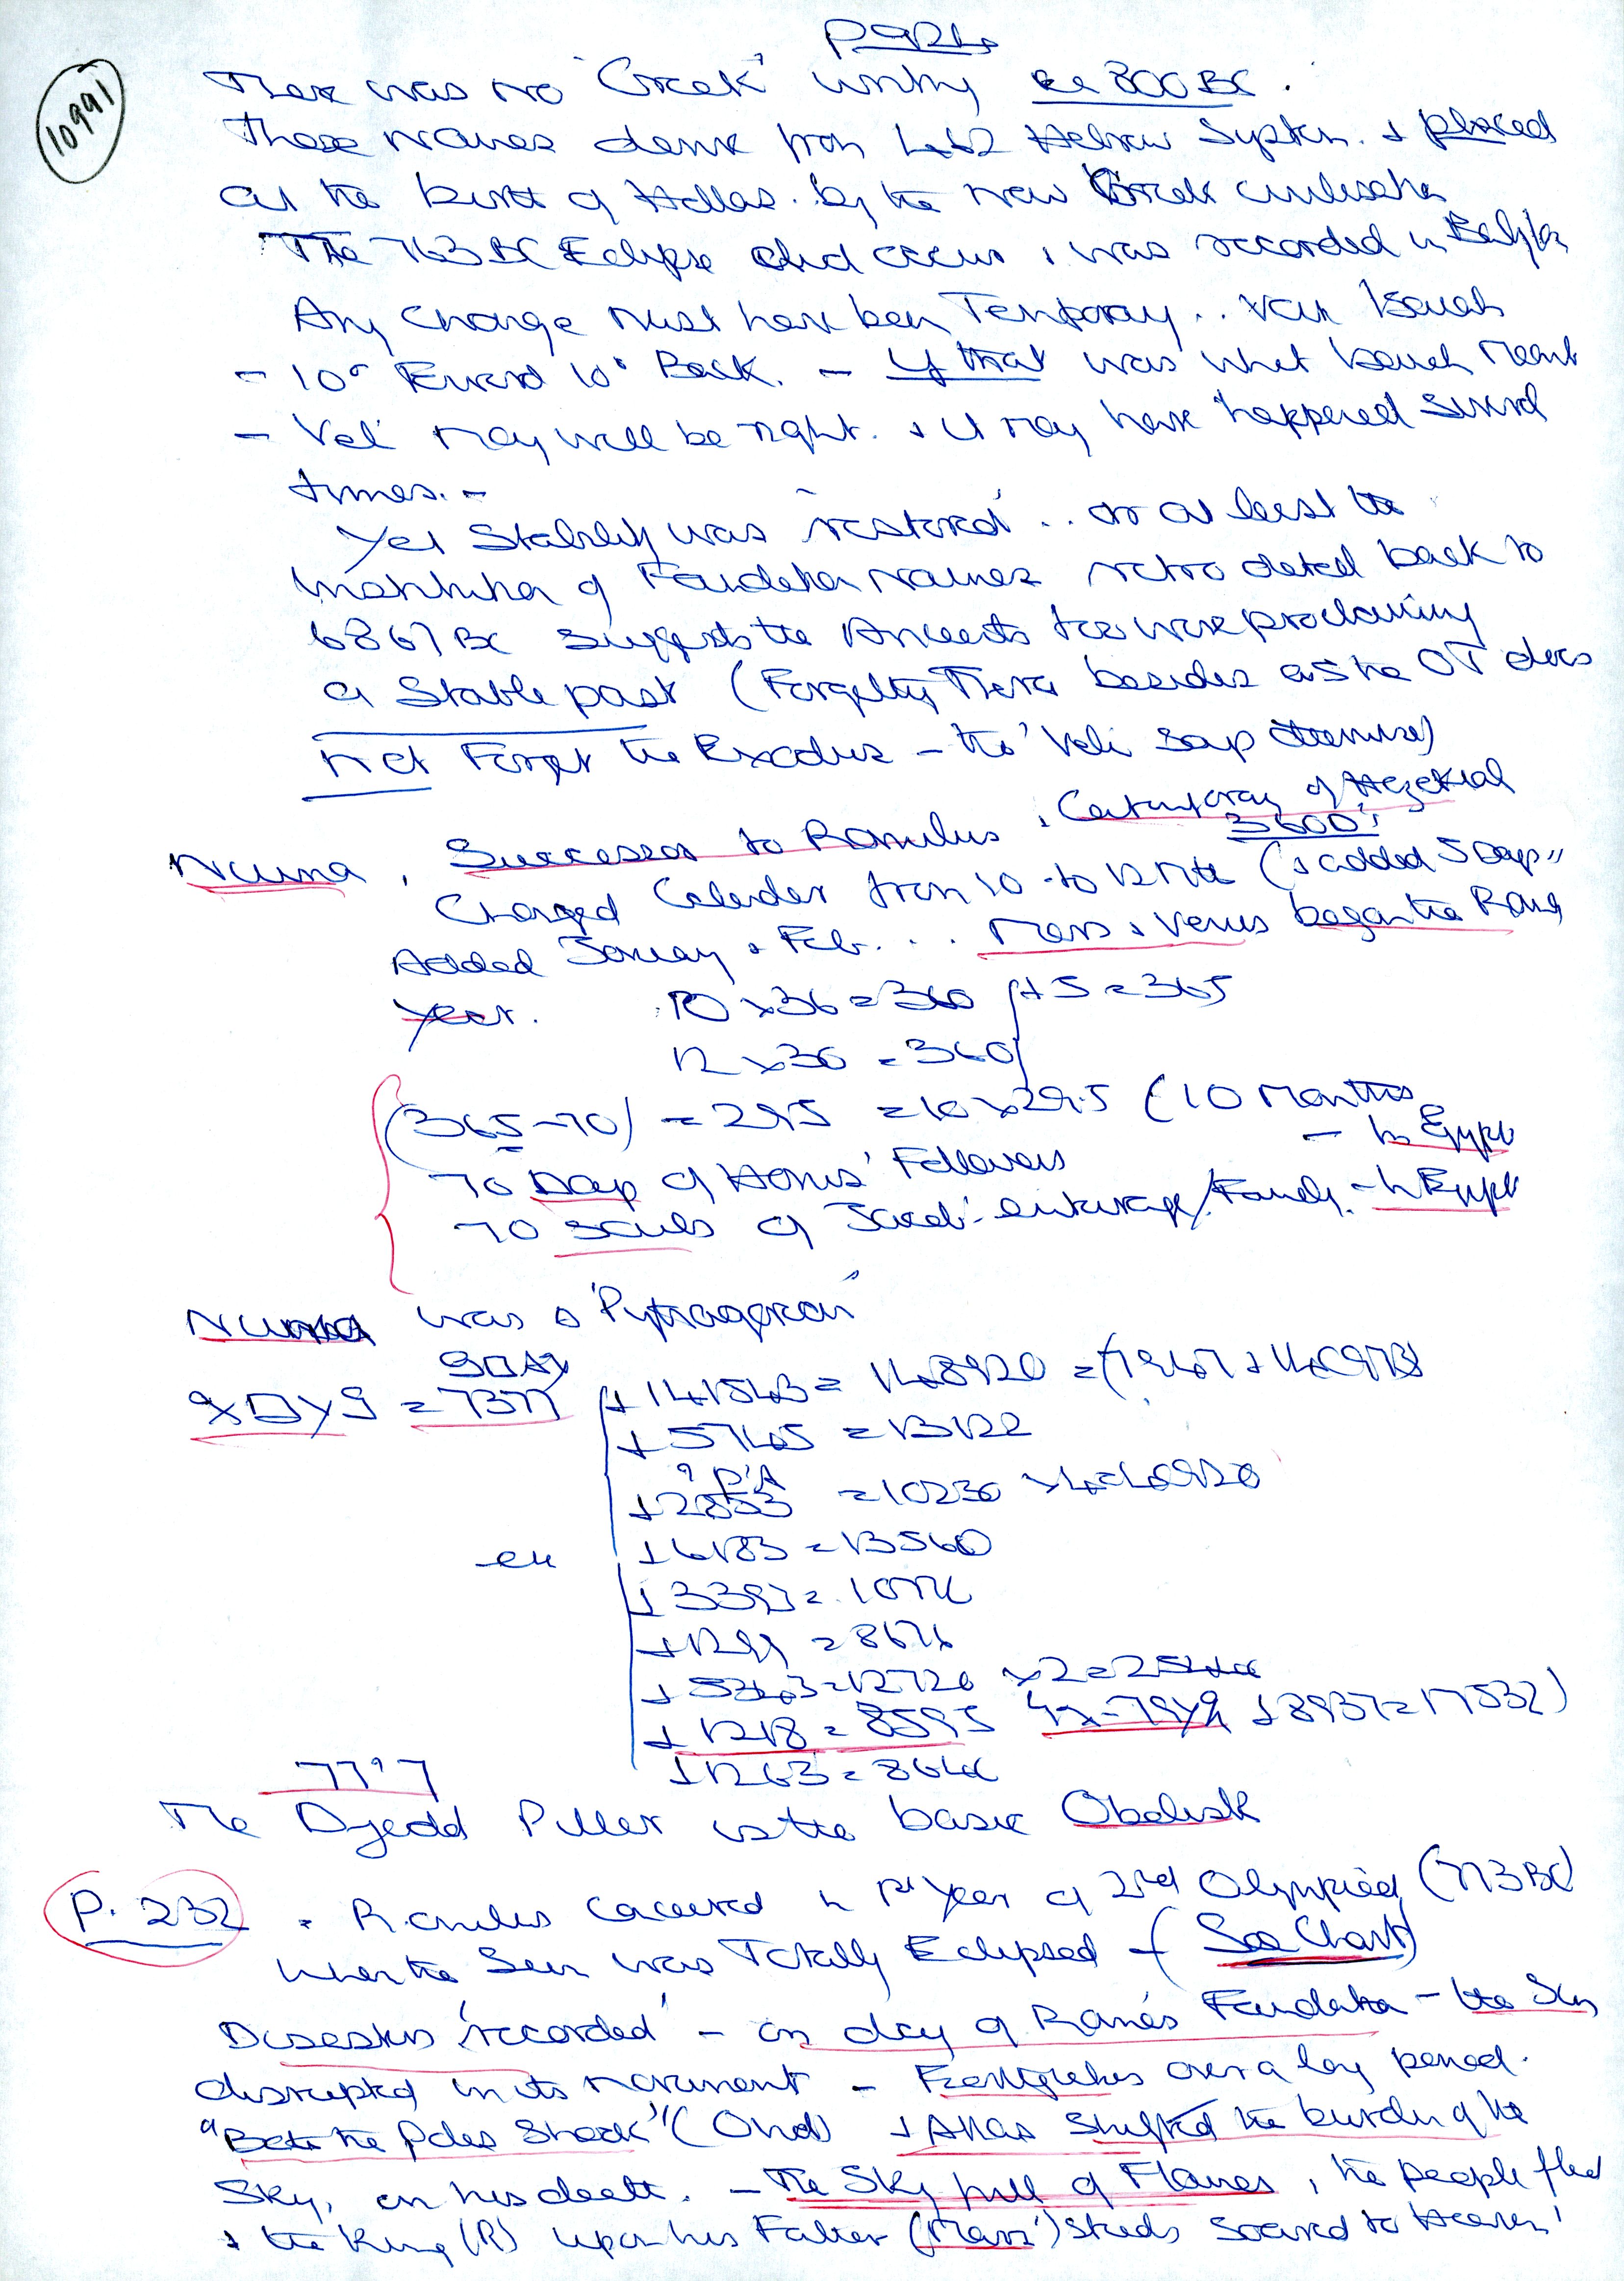 10991
There was no 'Greek' writing ca 800 BC.
These names derive from Hebrew System. & placed
at the birth of Hellas. by the new Greek civilisation
The 763 BC Eclipse did occur & was recorded in Babylon
Any change must have been Temporary.. Isaiah
- 10° 10° Back. - If that was what Isaiah meant
- Veli may well be right. & it may have happened several
times. -
Yet Stability was 'restored' .. or at least the
institution of Foundation Names retro dated back to
6867 BC suggests the Ancients too were proclaiming
a Stable past (Forgetting Thera besides as the OT does
not Forget the Exodus - tho' Veli says otherwise)
Numa, Successor to Romulus, Contemporary of Hezekiah
3600!
Changed Calendar from 10 to 12 Mth (& added 5 Days"
Added January & Feb... Mars & Venus began the Roman
Year. 10 x 36 = 360 + 5 = 365
12 x 30 = 360
(365-70) = 295 = 10 x 29.5 (10 Months
- in Egypt
70 Days of Horus' Followers
70 souls of Jacob's entourage/Family - in Egypt
Numa was a 'Pythagorean'
= 7377
+ 5745 = 13122
+ 2853 = 10230 x 4 = 40920
+ 6183 = 13560
+ 1299 = 8676
+ 5343 = 12720
+ 1218 = 8595 + 8937 = 17532)
The Djedd Piller is the basic Obelisk
P. 232 . Romulus conceived in 1st Year of 2nd Olympiad (773 BC)
When the Sun was Totally Eclipsed - (See Chart)
Disasters 'recorded' - on day of Rome's Foundation - the Sun
disrupted in its movement - Earthquakes over a long period.
"Both the Poles Shook" (Ovid) & Atlas shifted the burden of the
Sky, on his death. - The Sky full of Flames, the people fled
& the King (R) upon his Father (Mars') steeds soared to Heaven'